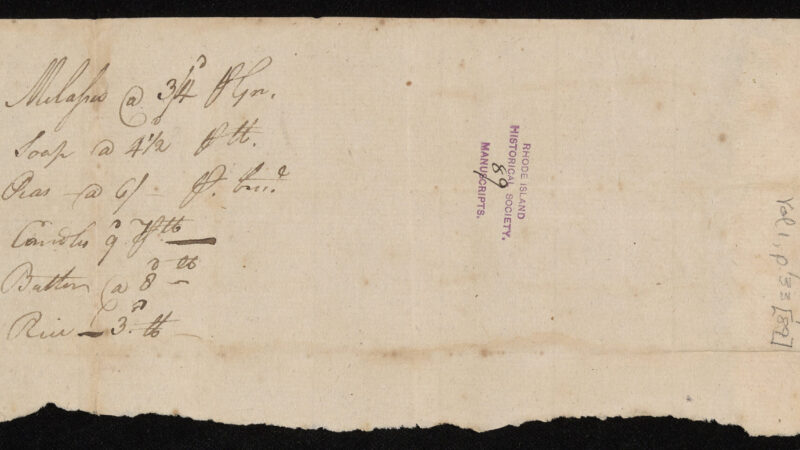 Molasses @ 3/4 ⅌ Gn.
Soap @ 4½ ⅌ lb.
Peas @ 6/ ⅌
Candles 9d ⅌ lb
Butter @ 8d lb
Rice 3d lb
RHODE ISLAND
HISTORICAL SOCIETY.
89
MANUSCRIPTS.
Vol 1, p 33 [89]